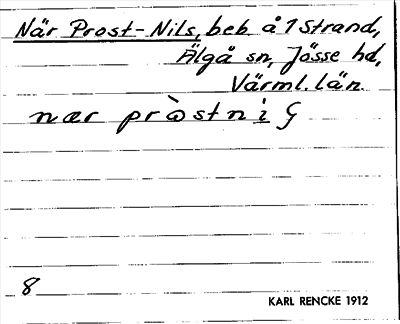 När Prost-Nils, beb. å 1 Strand,
Älgå sn, Jösse hd,
Värml. län.
nær pròstni
8
KARL RENCKE 1912